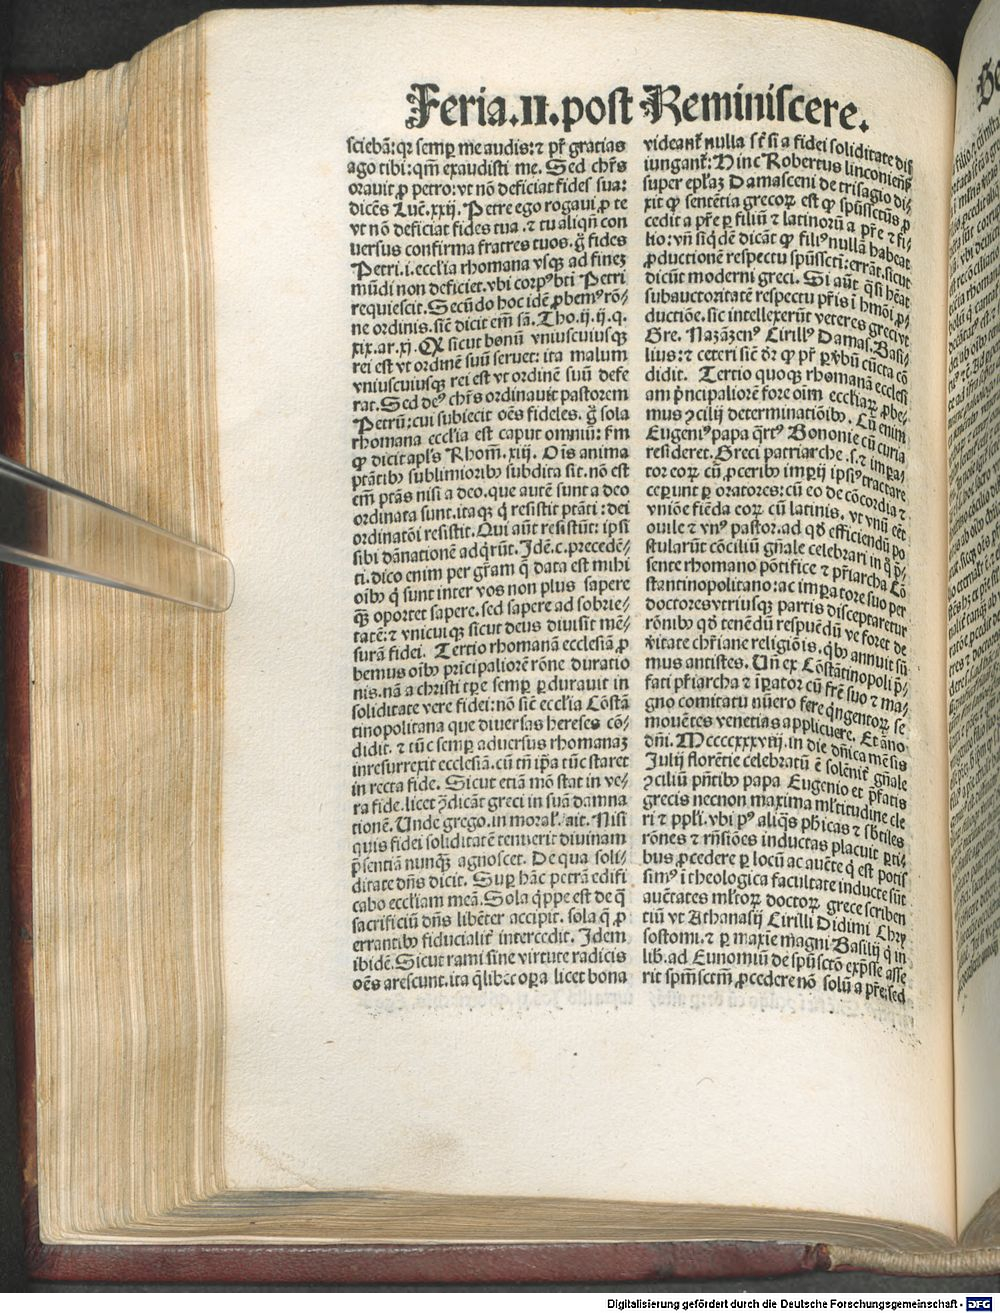 Feria.II.post Reminiscere.
sciebā: qr semꝑ me audis: ⁊ pr̄ gratias
ago tibi: qm̄ exaudisti me. Sed chr̄s
orauit ꝓ petro: vt nō deficiat fides sua:
dicēs Luc̄. xxij. Petre ego rogaui ꝓ te
vt nō deficiat fides tua. ⁊ tu aliqn̄ con
uersus confirma fratres tuos. ḡ fides
Petri. i. eccl'ia rhomana vsqꝫ ad finez
mūdi non deficiet. vbi corpꝰ bti Petri
requiescit. Secūdo hoc idē ꝓbemꝰ rō-
ne ordinis. sic̄ dicit em̄ sā. Tho. ij. ij. q.
xix. ar. xj. Qꝫ sicut bonū vniuscuiusqꝫ
rei est vt ordinē suū seruet: ita malum
vniuscuiusqꝫ rei est vt ordinē suū dese
rat. Sed deꝰ chr̄s ordinauit pastorem
Petrū: cui subiecit oēs fideles. ḡ sola
rhomana eccl'ia est caput omniū: ſm
ꝙ dicit apl's Rhom̄. xiij. Oīs anima
ptātibꝰ sublimioribꝰ subdita sit. nō est
em̄ ptās nisi a deo. que autē sunt a deo
ordinata sunt. itaqꝫ q̇ resistit ptāti: dei
ordinatōi resistit. Qui aūt resistūt: ipsi
sibi dānationē adq̇rūt. Idē. c. precedē-
ti. dico enim per gr̄am q̄ data est mihi
oībꝰ q̇ sunt inter vos non plus sapere
qꝫ̄ oportet sapere. sed sapere ad sobrie-
tatē: ⁊ vnicuiqꝫ sicut deus diuisit mē-
surā fidei. Tertio rhomanā ecclesiā ꝓ
bemus oībꝰ prīcipaliorē rōne duratio
nis. nā a christi tꝑe semꝑ ꝑdurauit in
soliditate vere fidei: nō sic̄ eccl'ia Cōstā
tinopolitana que diuersas hereses cō-
didit. ⁊ tūc semꝑ aduersus rhomanaꝫ
insurrexit ecclesiā. cū tn̄ ip̄a tūc staret
in recta fide. Sicut etiā mō stat in ve-
ra fide. licet ꝯdicāt greci in suā damna
tionē. Unde grego. in moral'. ait. Nisi
quis fidei soliditatē tenuerit diuinam
p̄sentiā nunqꝫ̄ agnoscet. De qua soli-
ditate dn̄s dicit. Suꝑ hāc petrā edifi
cabo eccl'iam meā. Sola q̇ppe est de q̄
sacrificiū dn̄s libēter accipit. sola q̄ ꝓ
errantibꝰ fiducialit̄ intercedit. Idem
ibidē. Sicut rami sine virtute radicis
oēs arescunt. ita q̄libet oꝑa licet bona
videant̄ nulla st̄ si a fidei soliditate dis
iungant̄: Hinc Robertus linconiēn̄
super epl'aꝫ Damasceni de trisagio di-
xit ꝙ sentētia grecoꝝ est ꝙ spūssctūs ꝓ
cedit a pr̄e ꝑ filiū ⁊ latinorū a pr̄e ⁊ fi-
lio: vn̄ siq̇dē dicāt ꝙ filiꝰ nullā habeat
ꝓductionē respectu spūsscti: errāt. sicut
dicūt moderni greci. Si aūt q̇si hēat
subauctoritatē respectu pr̄is ī hmōi ꝓ-
ductiōe. sic intellexerūt veteres greci vt
Gre. Nazāzenꝰ Cirillꝰ Damas. Basi-
lius: ⁊ ceteri sic̄ dr̄ ꝙ pr̄ ꝑ v̄bū cūcta cō
didit. Tertio quoqꝫ rhomanā ecclesi
am pr̄ncipaliorē fore oīm eccl'iaꝝ ꝓbe-
mus ꝯcilij determinatiōibꝰ. Cū enim
Eugeniꝰ papa q̇rtꝰ Bononie cū curia
resideret. Greci patriarche. s. ⁊ imꝑa-
tor eoꝝ cū ꝓceribꝰ imꝑij ipsiꝰ tractare
ceꝑunt ꝑ oratores: cū eo de cōcordia ⁊
vniōe fiēda eoꝝ cū latinis. vt vnū eēt
ouile ⁊ vnꝰ pastor. ad qd̄ efficiendū po
stularūt cōciliū gn̄ale celebrari in q̊ p̄-
sente rhomano pōtifice ⁊ pr̄iarcha Cō
stantinopolitano: ac imꝑatore suo per
doctores vtriusqꝫ partis disceptaretur
rōnibꝰ qd̄ tenēdū respuēdū ve foret de
v̄itate chr̄iane religiōis. q̇bꝰ annuit sū
mus antistes. Un̄ ex Cōstātinopoli p̄-
fati pr̄iarcha ⁊ īꝑator cū fr̄e suo ⁊ ma-
gno comitatu nūero fere q̇ngentoꝝ se
mouētes venetias applicuere. Et āno
dn̄i. Mccccxxxviij. in die dn̄ica mēsis
Julij florētie celebratū ē solēnit̄ gn̄ale
ꝯciliū pn̄tibꝰ papa Eugenio et p̄fatis
grecis necnon maxima ml'titudine cle
ri ⁊ ppl'i. vbi pꝰ aliq̄s ph̄icas ⁊ sb̄tiles
rōnes ⁊ rn̄siōes inductas placuit ꝑti-
bus ꝓcedere ꝑ locū ac auēte q̇ est potis
simꝰ ī theologica facultate inducte sūt
auētates ml'toꝝ doctoꝝ grece scriben
tiū vt Athanasij Cirilli Didimi Chry
sostomi. ⁊ ꝑ maxīe magni Basilij q̇ in
lib. ad Eunomiū de spūsctō exp̄sse asse
rit spm̄sctm̄ ꝓcedere nō solū a pr̄e: sed
Digitalisierung gefördert durch die Deutsche Forschungsgemeinschaft - DFG